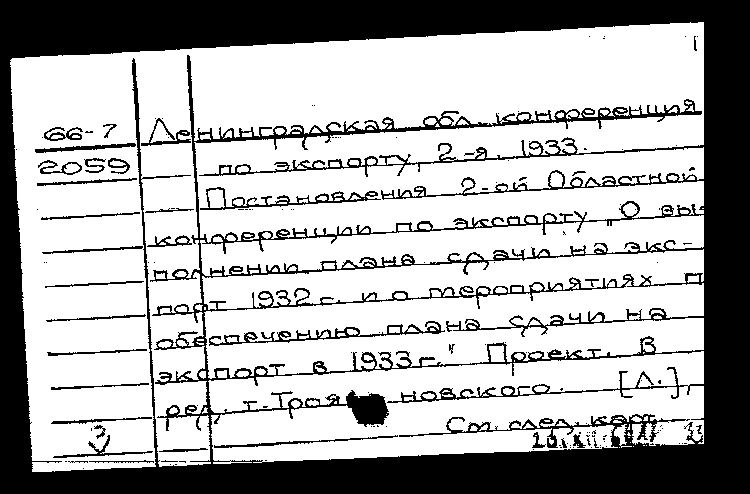 66-7 Ленинградская обл. конференция
2059 по экспорту, 2-я. 1933.
Постановления 2-ой Областной
конференции по экспорту „О вы-
полнении плана сдачи на экс-
порт 1932 г. и о мероприятиях п
обеспечению плана сдачи на
экспорт в 1933 г." Проект. В
ред. т. Троя новского. [Л.],
3 См. след. карт.